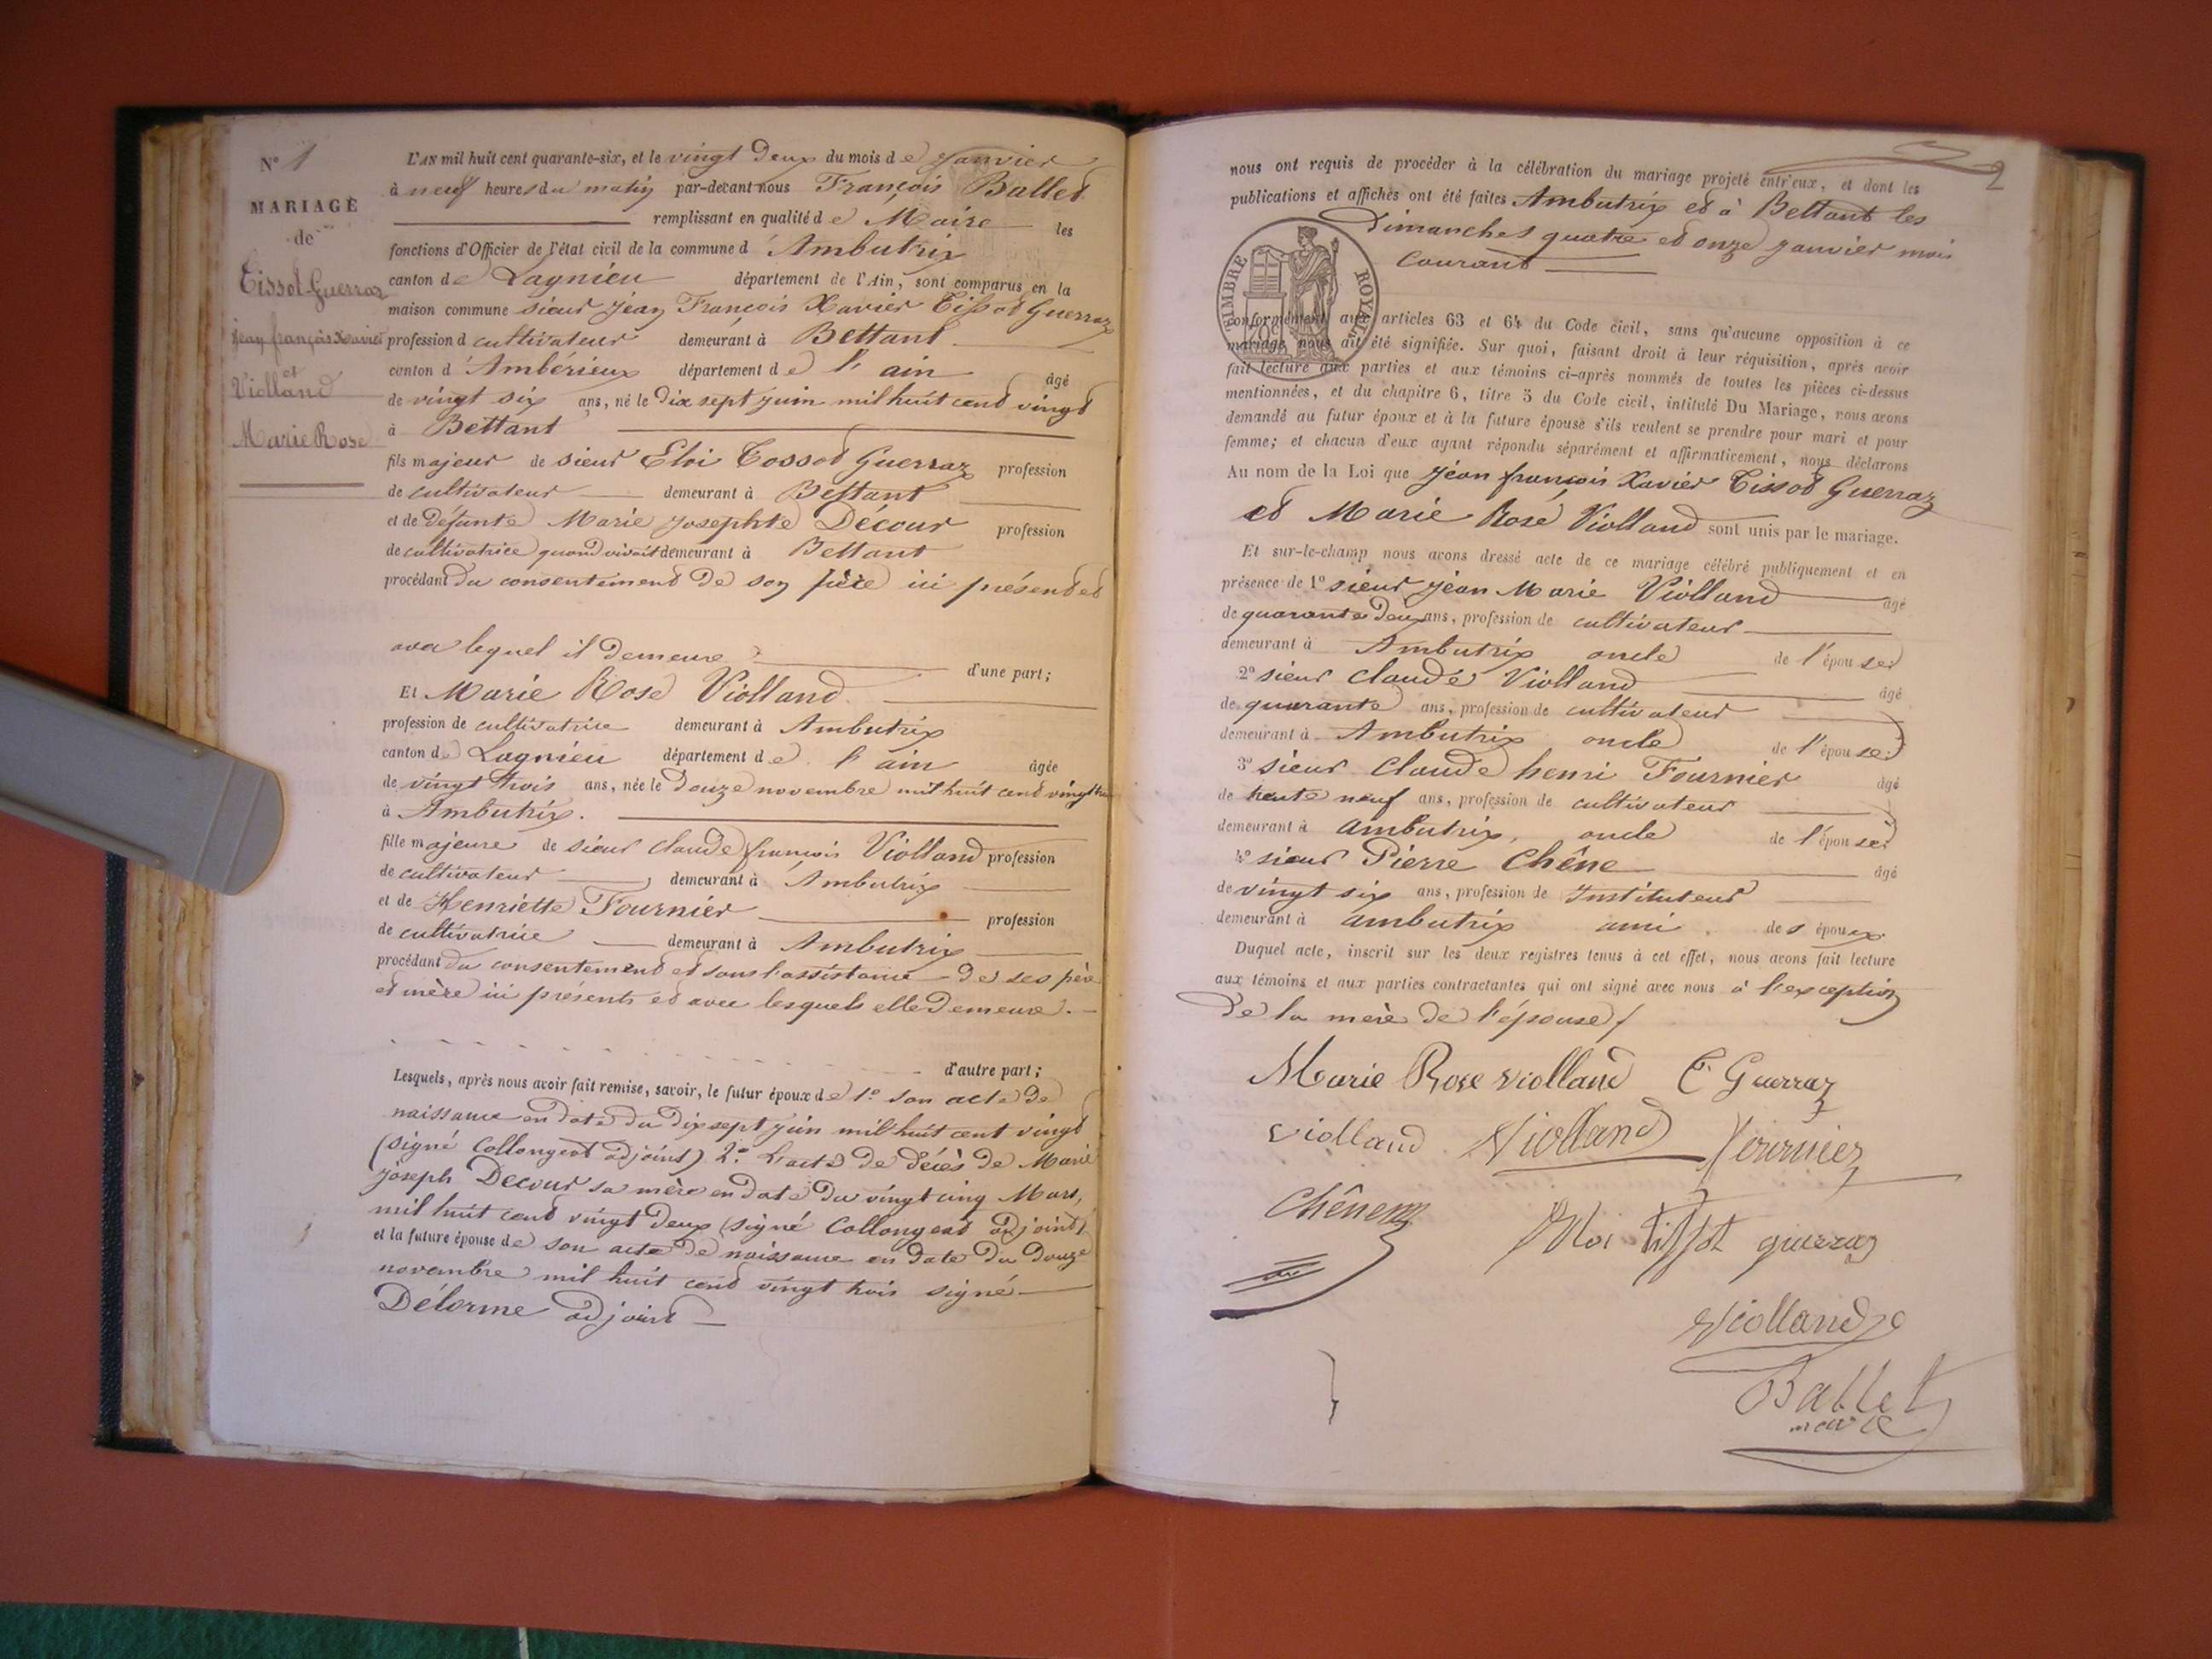 N° 1
MARIAGE
de
Tissot-Guerraz
jean françois Xavier
et
Violland
Marie Rose
L'AN mil huit cent quarante-six, et le vingt deux du mois de janvier
à neuf heures du matin par-devant nous François Ballet
remplissant en qualité de Maire les
fonctions d'Officier de l'état civil de la commune d'Ambutrix
canton de Lagnieu département de l'Ain, sont comparus en la
maison commune sieur jean François Xavier Tissot Guerraz
profession d cultivateur demeurant à Bettant
canton d'Ambérieux département de l'ain âgé
de vingt six ans, né le dix sept juin mil huit cent vingt
à Bettant
fils majeur de sieur Eloi Tossot Guerraz profession
de cultivateur demeurant à Bettant
et de défunte Marie josephte Décour profession
de cultivatrice quand vivait demeurant à Bettant
procédant du consentement de son père ici présent et
avec lequel il demeure d'une part;
Et Marie Rose Violland
profession de cultivatrice demeurant à Ambutrix
canton de Lagnieu département de l'ain âgée
de vingt trois ans, née le douze novembre mil huit cent vingt trois
à Ambutrix.
fille majeure de sieur claude françois Violland profession
de cultivateur demeurant à Ambutrix
et de Henriette Fournier profession
de cultivatrice demeurant à Ambutrix
procédant du consentement et sous l'assistance de ses père
et mère ici présents et avec lesquels elle demeure.
d'autre part;
Lesquels, après nous avoir fait remise, savoir, le futur époux de 1° son acte de
naissance en date du dix sept juin mil huit cent vingt
(signé Collongeat adjoint) 2° L'acte de décès de Marie
joseph Decour sa mère en date du vingt cinq Mars,
mil huit cent vingt deux (signé Collongeat adjoint)
et la future épouse de son acte de naissance en date du douze
novembre mil huit cent vingt trois signé
Délorme adjoint
2
nous ont requis de procéder à la célébration du mariage projeté entr'eux, et dont les
publications et affiches ont été faites Ambutrix et à Bettant les
Dimanches quatre et onze janvier mois
courant
TIMBRE ROYAL
conformément aux articles 63 et 64 du Code civil, sans qu'aucune opposition à ce
mariage nous ait été signifiée. Sur quoi, faisant droit à leur réquisition, après avoir
fait lecture aux parties et aux témoins ci-après nommés de toutes les pièces ci-dessus
mentionnées, et du chapitre 6, titre 5 du Code civil, intitulé Du Mariage, nous avons
demandé au futur époux et à la future épouse s'ils veulent se prendre pour mari et pour
femme; et chacun d'eux ayant répondu séparément et affirmativement, nous déclarons
Au nom de la Loi que jean françois Xavier Tissot Guerraz
et Marie Rose Violland sont unis par le mariage.
Et sur-le-champ nous avons dressé acte de ce mariage célébré publiquement et en
présence de 1° sieur jean Marie Violland âgé
de quarante deux ans, profession de cultivateur
demeurant à Ambutrix oncle de l'épouse
2° sieur claude Violland âgé
de quarante ans, profession de cultivateur
demeurant à Ambutrix oncle de l'épouse
3° sieur Claude henri Fournier âgé
de trente neuf ans, profession de cultivateur
demeurant à ambutrix, oncle de l'épouse
4° sieur Pierre Chêne âgé
de vingt six ans, profession de Instituteur
demeurant à ambutrix ami des époux.
Duquel acte, inscrit sur les deux registres tenus à cet effet, nous avons fait lecture
aux témoins et aux parties contractantes qui ont signé avec nous à l'exception
de la mère de l'épouse
Marie Rose violland T. Guerraz
violland Violland fournier
Chêne
Eloi tissot guerraz
Violland
Ballet
maire